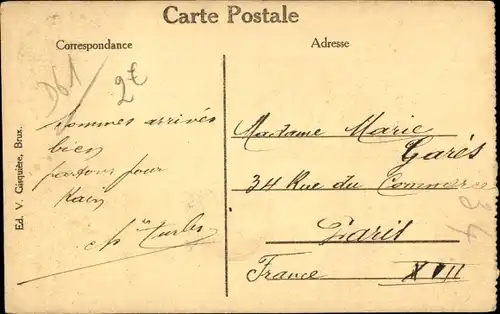 Carte Postale
Correspondance
Adresse
D61
2€
sommes arrivés
bien
partons pour
Ed. V. Gisquière, Brux.
Madame Marie
Garès
34 Rue du Commerce
Paris
France
34